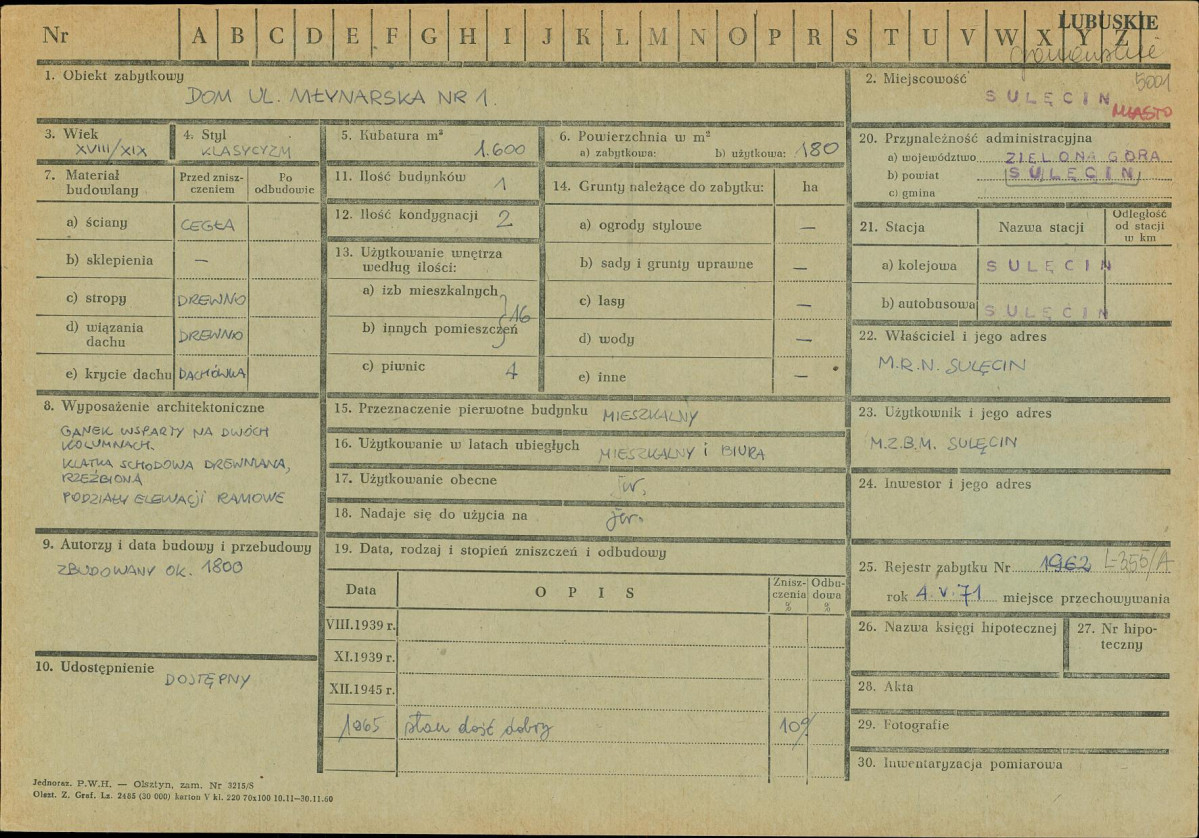 Nr A B C D E F G H I J K L M N O P R S T U V W X Y Z
LUBUSKIE
5001
1. Obiekt zabytkowy
DOM UL. MŁYNARSKA NR 1.
2. Miejscowość
SULĘCIN
MIASTO
3. Wiek
XVIII/XIX
4. Styl
KLASYCYZM
5. Kubatura m³
1.600
6. Powierzchnia w m²
a) zabytkowa: b) użytkowa: 180
7. Materiał budowlany
Przed zniszczeniem
Po odbudowie
a) ściany CEGŁA
b) sklepienia —
c) stropy DREWNO
d) wiązania dachu DREWNO
e) krycie dachu DACHÓWKA
8. Wyposażenie architektoniczne
GANEK WSPARTY NA DWÓCH
KOLUMNACH.
KLATKA SCHODOWA DREWNIANA,
RZEŹBIONA
PODZIAŁY ELEWACJI RAMOWE
9. Autorzy i data budowy i przebudowy
ZBUDOWANY OK. 1800
10. Udostępnienie
DOSTĘPNY
11. Ilość budynków 1
12. Ilość kondygnacji 2
13. Użytkowanie wnętrza
według ilości:
a) izb mieszkalnych
b) innych pomieszczeń
16
c) piwnic 4
14. Grunty należące do zabytku: ha
a) ogrody stylowe —
b) sady i grunty uprawne —
c) lasy —
d) wody —
e) inne —
15. Przeznaczenie pierwotne budynku MIESZKALNY
16. Użytkowanie w latach ubiegłych MIESZKALNY i BIURA
17. Użytkowanie obecne jw.
18. Nadaje się do użycia na jw.
19. Data, rodzaj i stopień zniszczeń i odbudowy
Data
OPIS
Zniszczenia %
Odbudowa %
VIII.1939 r.
XI.1939 r.
XII.1945 r.
1965 stan dość dobry 10%
20. Przynależność administracyjna
a) województwo ZIELONA GÓRA
b) powiat SULĘCIN
c) gmina
21. Stacja
Nazwa stacji
Odległość od stacji w km
a) kolejowa SULĘCIN
b) autobusowa SULĘCIN
22. Właściciel i jego adres
M.R.N. SULĘCIN
23. Użytkownik i jego adres
M.Z.B.M. SULĘCIN
24. Inwestor i jego adres
25. Rejestr zabytku Nr 1962 L-355/A
rok 4.V.71 miejsce przechowywania
26. Nazwa księgi hipotecznej
27. Nr hipoteczny
28. Akta
29. Fotografie
30. Inwentaryzacja pomiarowa
Jednoraz. P.W.H. — Olsztyn, zam. Nr 3215/S
Olszt. Z. Graf. Lz. 2485 (30 000) karton V kl. 220 70x100 10.11—30.11.60